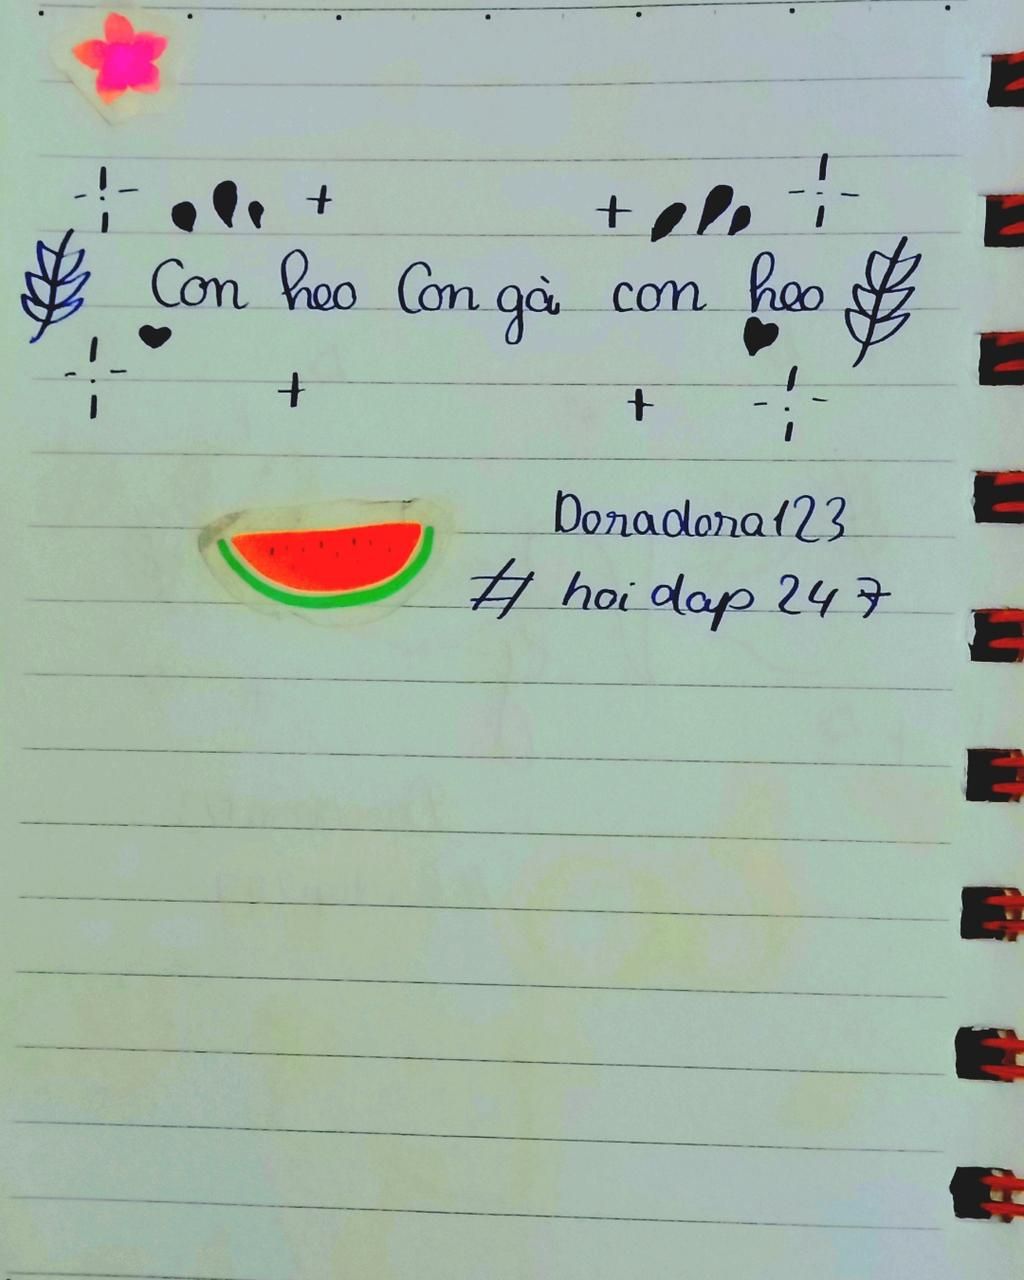 Con heo Con gà con heo
Doradora123
# hoidap 247